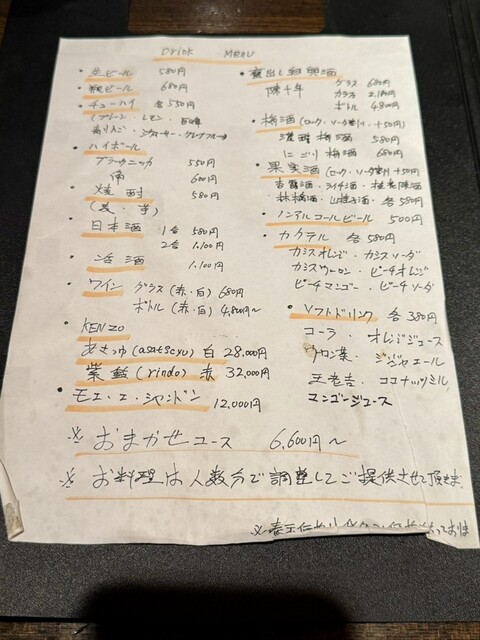 Drink MENU
・生ビール 580円
・瓶ビール 680円
・チューハイ 各550円
(プレーン・レモン・巨峰
青りんご・シークヮーサー・グレープフルーツ
・ハイボール
ブラックニッカ 550円
角 600円
・焼酎 580円
(麦・芋)
・日本酒 1合 580円
2合 1,100円
・活酒 1,100円
・ワイン グラス(赤・白) 680円
ボトル(赤・白) 4,800円〜
・KENZO
あさつゆ(asatsuyu) 白 28,000円
紫鈴(rindo) 赤 32,000円
・モエ・エ・シャンドン 12,000円
・甕出し紹興酒
陳十年 グラス 680円
カラフェ 2,180円
ボトル 4,800円
・梅酒(ロック・ソーダ割り +50円)
濃醇梅酒 580円
にごり梅酒 680円
・果実酒(ロック・ソーダ割り +50円)
杏露酒・ライチ酒・桂花陳酒
林檎酒・山査子酒 各580円
・ノンアルコールビール 500円
・カクテル 各580円
カシスオレンジ・カシスソーダ
カシスウーロン・ピーチオレンジ
ピーチマンゴー・ピーチソーダ
・ソフトドリンク 各380円
コーラ・オレンジジュース
ウーロン茶・ジンジャエール
王老吉・ココナッツミルク
マンゴージュース
※おまかせコース 6,600円〜
※お料理は人数分で調整してご提供させて頂きます
※表示